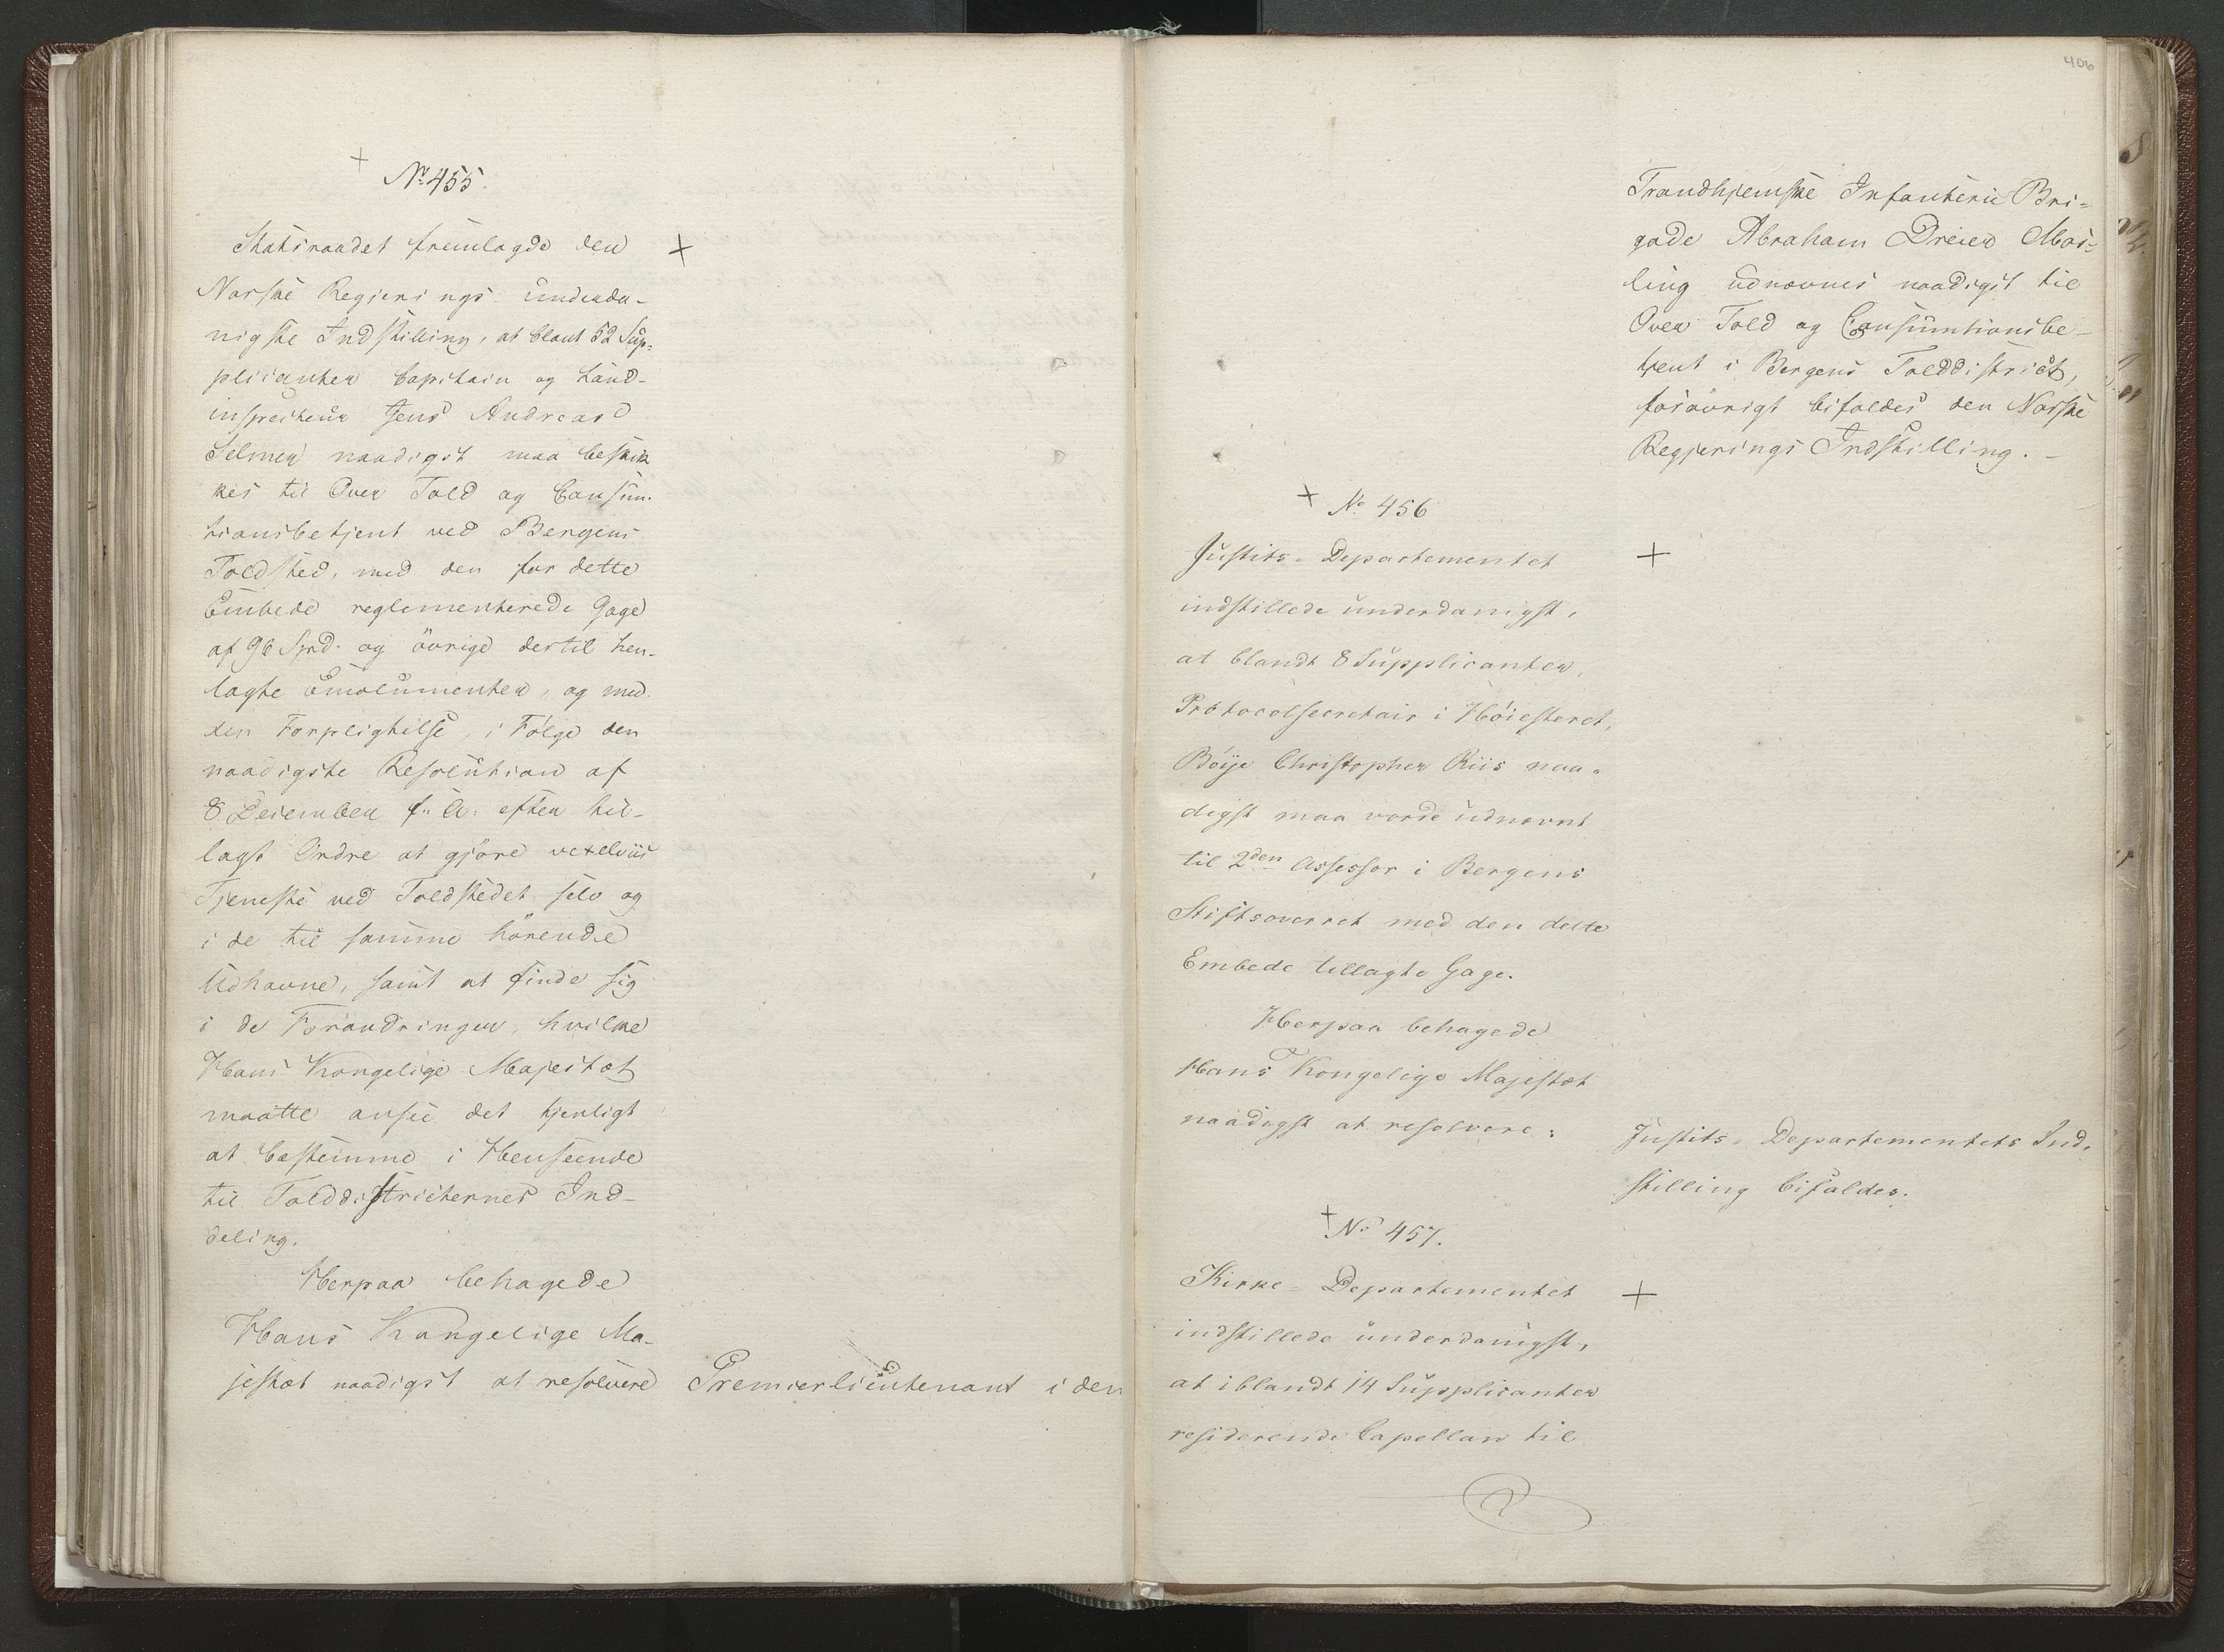 +
No 455.
Statsraadet fremlagde den +
Norske Regjerings underda-
nigste Indstilling, at blant 52 Sup-
plicanter Capitain og Land-
inspecteur Jens Andreas
Selmer naadigst maa beskik
kes til Over Told og Consum-
tionsbetjent ved Bergens
Toldsted, med den for dette
Embede reglementerede Gage
af 96 Spd. og övrige dertil hen-
lagte Emolumenter, og med
den Forpligtelse, i Fölge den
naadigste Resolution af
8 December f: A: efter til-
lagt Ordre at gjöre vexelviis
Tjeneste ved Toldstedet selv og
i de til samme hörende
Udhavne, samt at finde sig
i de Forandringer, hvilke
Hans Kongelige Majestæt
maatte ansee det tjenligt
at bestemme i Henseende
til Tolddistricternes Ind-
deling.
Herpaa behagede
Hans Kongelige Ma-
jestæt naadigst at resolvere Premierlieutenant i den
406
Trondhjemske Infanterie Bri-
gade Abraham Dreier
ling udnævnes naadigst til
Over Told og Consumtionsbe-
tjent i Bergens Tolddistrict,
forövrigt bifaldes den Norske
Regjerings Indstilling. -
+ No 456
Justits-Departementet +
indstillede underdanigst,
at blandt 8 Supplicanter,
Protocolsecretair i Höiesteret,
Böije Christopher Riis naa-
digst maa vorde udnævnt
til 2den Assessor i Bergens
Stiftsoverret med den dette
Embede tillagte Gage.
Herpaa behagede
Hans Kongelige Majestæt
naadigst at resolvere:
Justits-Departementets Ind-
stilling bifaldes.
+ No 457.
Kirke-Departementet +
indstillede underdanigst,
at iblandt 14 Supplicanter
residerende Capellan til